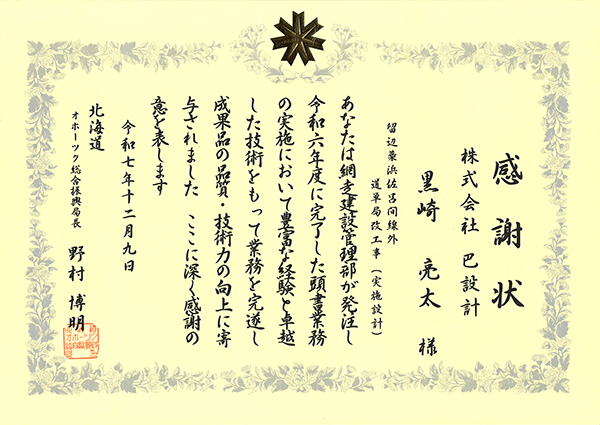 感謝状
株式会社 巴設計
黒崎 亮太 様
留辺蘂浜佐呂間線外
道単局改工事（実施設計）
あなたは網走建設管理部が発注し
令和六年度に完了した頭書業務
の実施において豊富な経験と卓越
した技術をもって業務を完遂し
成果品の品質・技術力の向上に寄
与されました ここに深く感謝の
意を表します
令和七年十二月九日
北海道
オホーツク総合振興局長
野村 博明